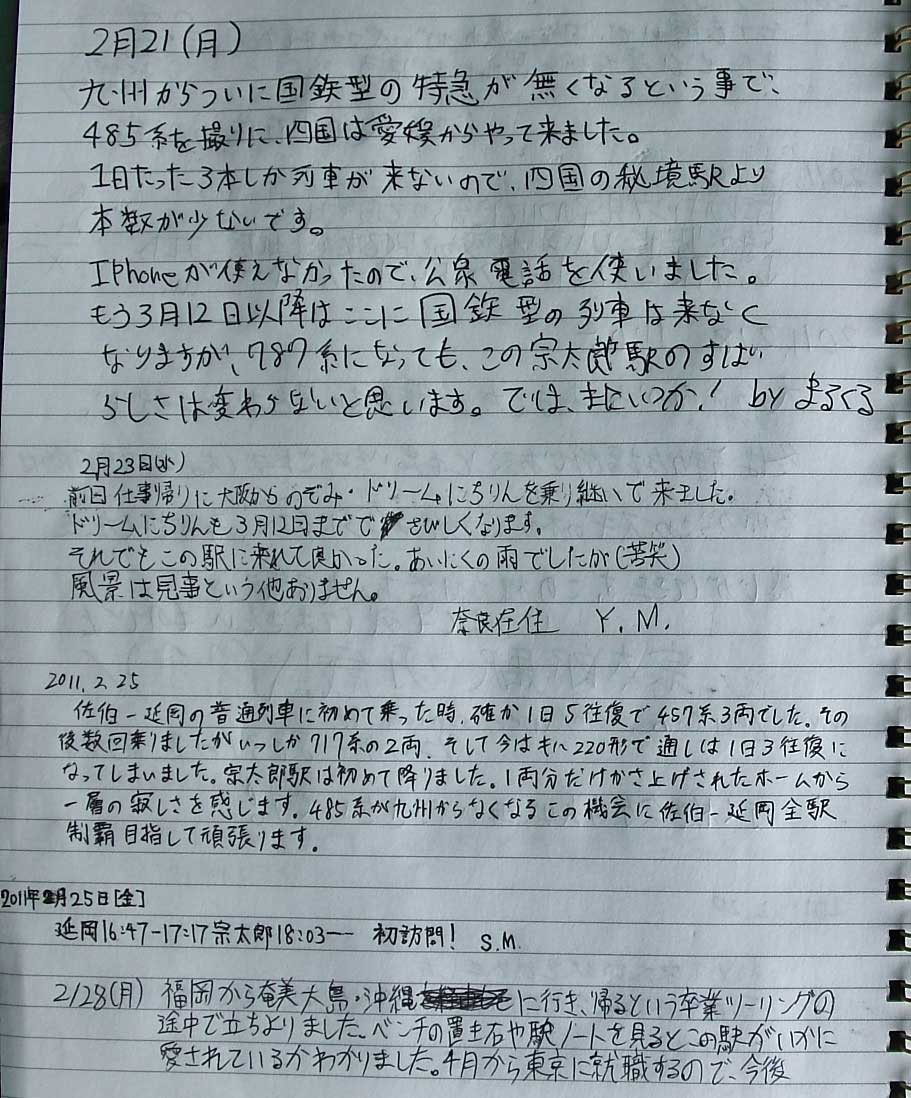 2月21(月)
九州からついに国鉄型の特急が無くなるという事で、
485系を撮りに、四国は愛媛からやって来ました。
1日たった3本しか列車が来ないので、四国の秘境駅より
本数が少ないです。
IPhoneが使えなかったので、公衆電話を使いました。
もう3月12日以降はここに国鉄型の列車は来なく
なりますが、787系になっても、この宗太郎駅のすばい
らしさは変わらないと思います。では、またいつか! by まるくる
2月23日(水)
前日仕事帰りに大阪からのぞみ・ドリームにちりんを乗り継いで来ました。
ドリームにちりんも3月12日まででさびしくなります。
それでもこの駅に来れて良かった。あいにくの雨でしたが(苦笑)
風景は見事という他ありません。
奈良在住 Y.M.
2011.2.25
佐伯-延岡の普通列車に初めて乗った時、確か1日5往復で457系3両でした。その
後数回乗りましたがいつしか717系の2両、そして今はキハ220形で通しは1日3往復に
なってしまいました。宗太郎駅は初めて降りました。1両分だけかさ上げされたホームから
一層の寂しさを感じます。485系が九州からなくなるこの機会に佐伯-延岡全駅
制覇目指して頑張ります。
2011年2月25日[金]
延岡16:47-17:17宗太郎18:03― 初訪問! S.M.
2/28(月) 福岡から奄美大島・沖縄に行き、帰るという卒業ツーリングの
途中で立ちよりました。ベンチの置き石や駅ノートを見るとこの駅がいかに
愛されているかわかりました。4月から東京に就職するので、今後